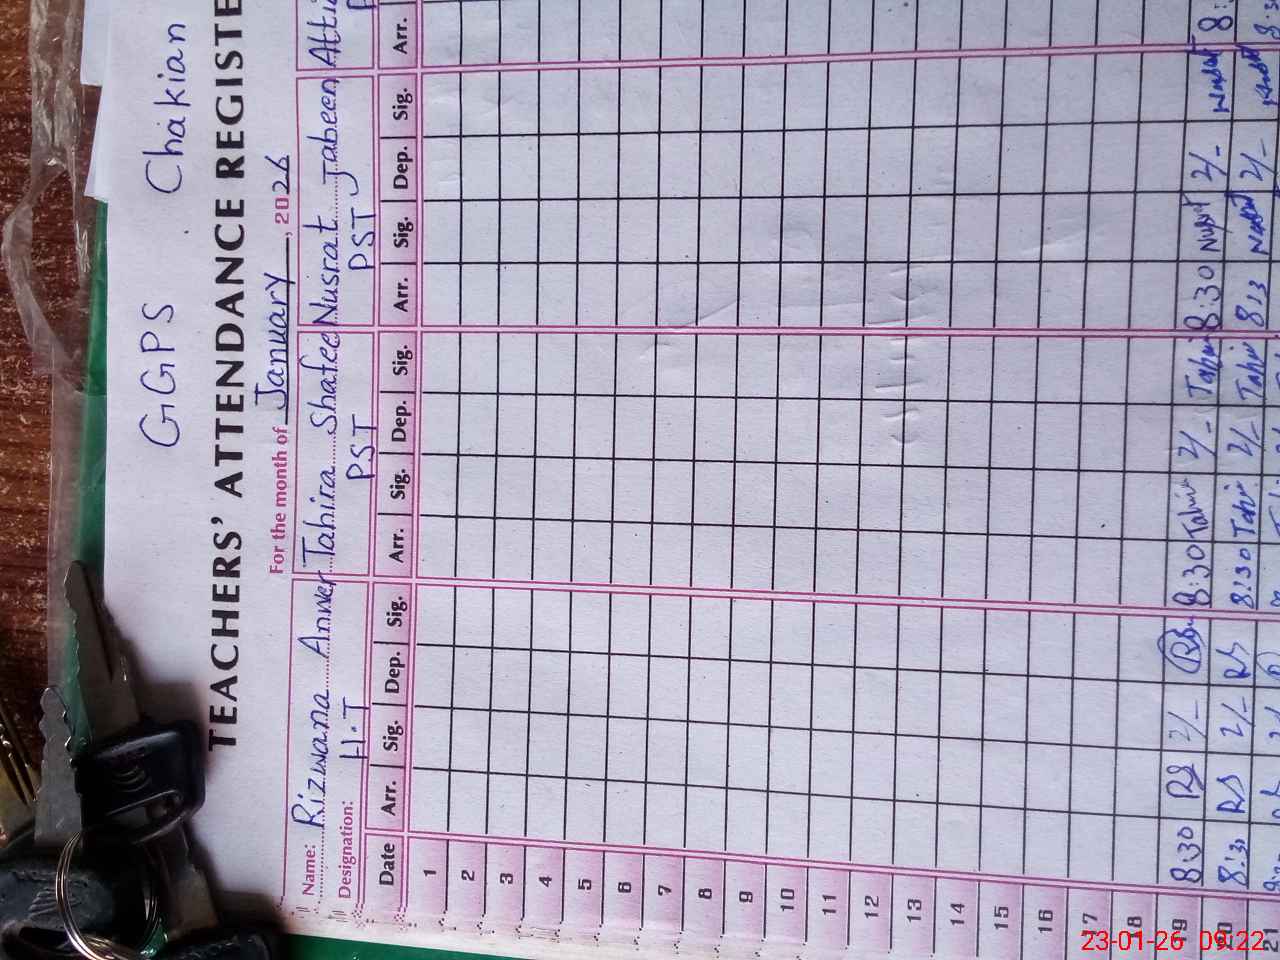 GGPS Chakian
TEACHERS' ATTENDANCE REGISTE
For the month of January, 2026
Name: Rizwana Anwer Tahira Shafee Nusrat Jabeen
Designation: H.T PST PST
Date Arr. Sig. Dep. Sig. Arr. Sig. Dep. Sig. Arr. Sig. Dep. Sig. Arr.
1
2
3
4
5
6
7
8
9
10
11
12
13
14
15
16
17
18
19 8:30 RS 2/- RS 8:30 Tahir 2/- Tahir 8:30 Nusrat 2/- Nusrat 8:
20 8:30 RS 2/- RS 8:30 Tahir 2/- Tahir 8:30 Nusrat 2/- Nusrat
21
23-01-26 09:22